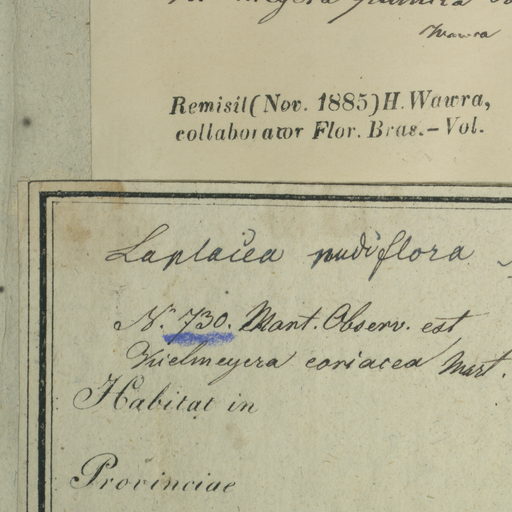 Wawra
Remisit (Nov. 1885) H. Wawra,
collaborator Flor. Bras. – Vol.
Laplacea nudiflora
N.º 730. Mart. Observ. est
Kielmeyera coriacea Mart.
Habitat in
Provinciae